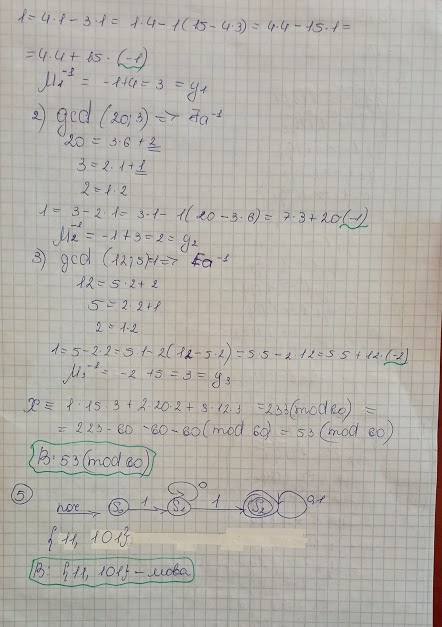 1 = 4·1 - 3·1 = 1·4 - 1(15 - 4·3) = 4·4 - 15·1 =
= 4·4 + 15·(-1)
M₁⁻¹ = -1+4 = 3 = y₁
2) gcd (20,3) => ∃a⁻¹
20 = 3·6 + 2
3 = 2·1 + 1
2 = 1·2
1 = 3 - 2·1 = 3·1 - 1(20 - 3·6) = 7·3 + 20(-1)
M₂⁻¹ = -1+3 = 2 = y₂
3) gcd (12,5)=1 => ∃a⁻¹
12 = 5·2 + 2
5 = 2·2+1
2 = 1·2
1 = 5 - 2·2 = 5·1 - 2(12 - 5·2) = 5·5 - 2·12 = 5·5 + 12·(-2)
M₃⁻¹ = -2 + 5 = 3 = y₃
X ≡ 1·15·3 + 2·20·2 + 3·12·3 = 233 (mod 60) =
= 223 - 60 - 60 - 60 (mod 60) = 53 (mod 60)
В: 53 (mod 60)
5 поч S₀ 1 S₁ 0 1 S₂ 0,1
{11, 101}
В: {11, 101} - мова